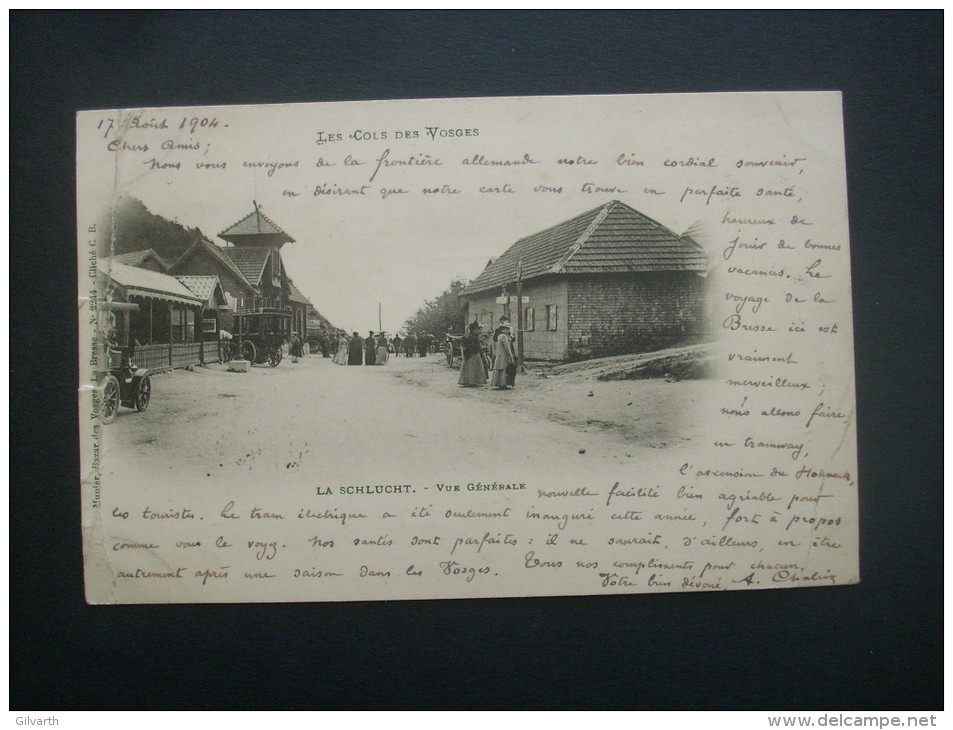 17 Août 1904.
LES COLS DES VOSGES
Chers Amis;
Nous vous envoyons de la frontière allemande notre bien cordial souvenir,
en désirant que notre carte vous trouve en parfaite santé,
heureux de
jouir de bonnes
vacances. Le
voyage de la
Bresse ici est
vraiment
merveilleux;
nous allons faire,
en tramway,
l'ascension du Hohneck,
LA SCHLUCHT. - VUE GÉNÉRALE
nouvelle facilité bien agréable pour
les touristes. Le tram électrique a été seulement inauguré cette année, fort à propos
comme vous le voyez. Nos santés sont parfaites: il ne saurait, d'ailleurs, en être
autrement après une saison dans les Vosges. Tous nos compliments pour chacun.
Votre bien dévoué, A.
Munier, Bazar des Vosges, La Bresse - N° 2244 - Cliché C. B.
Gilvarth
www.delcampe.net